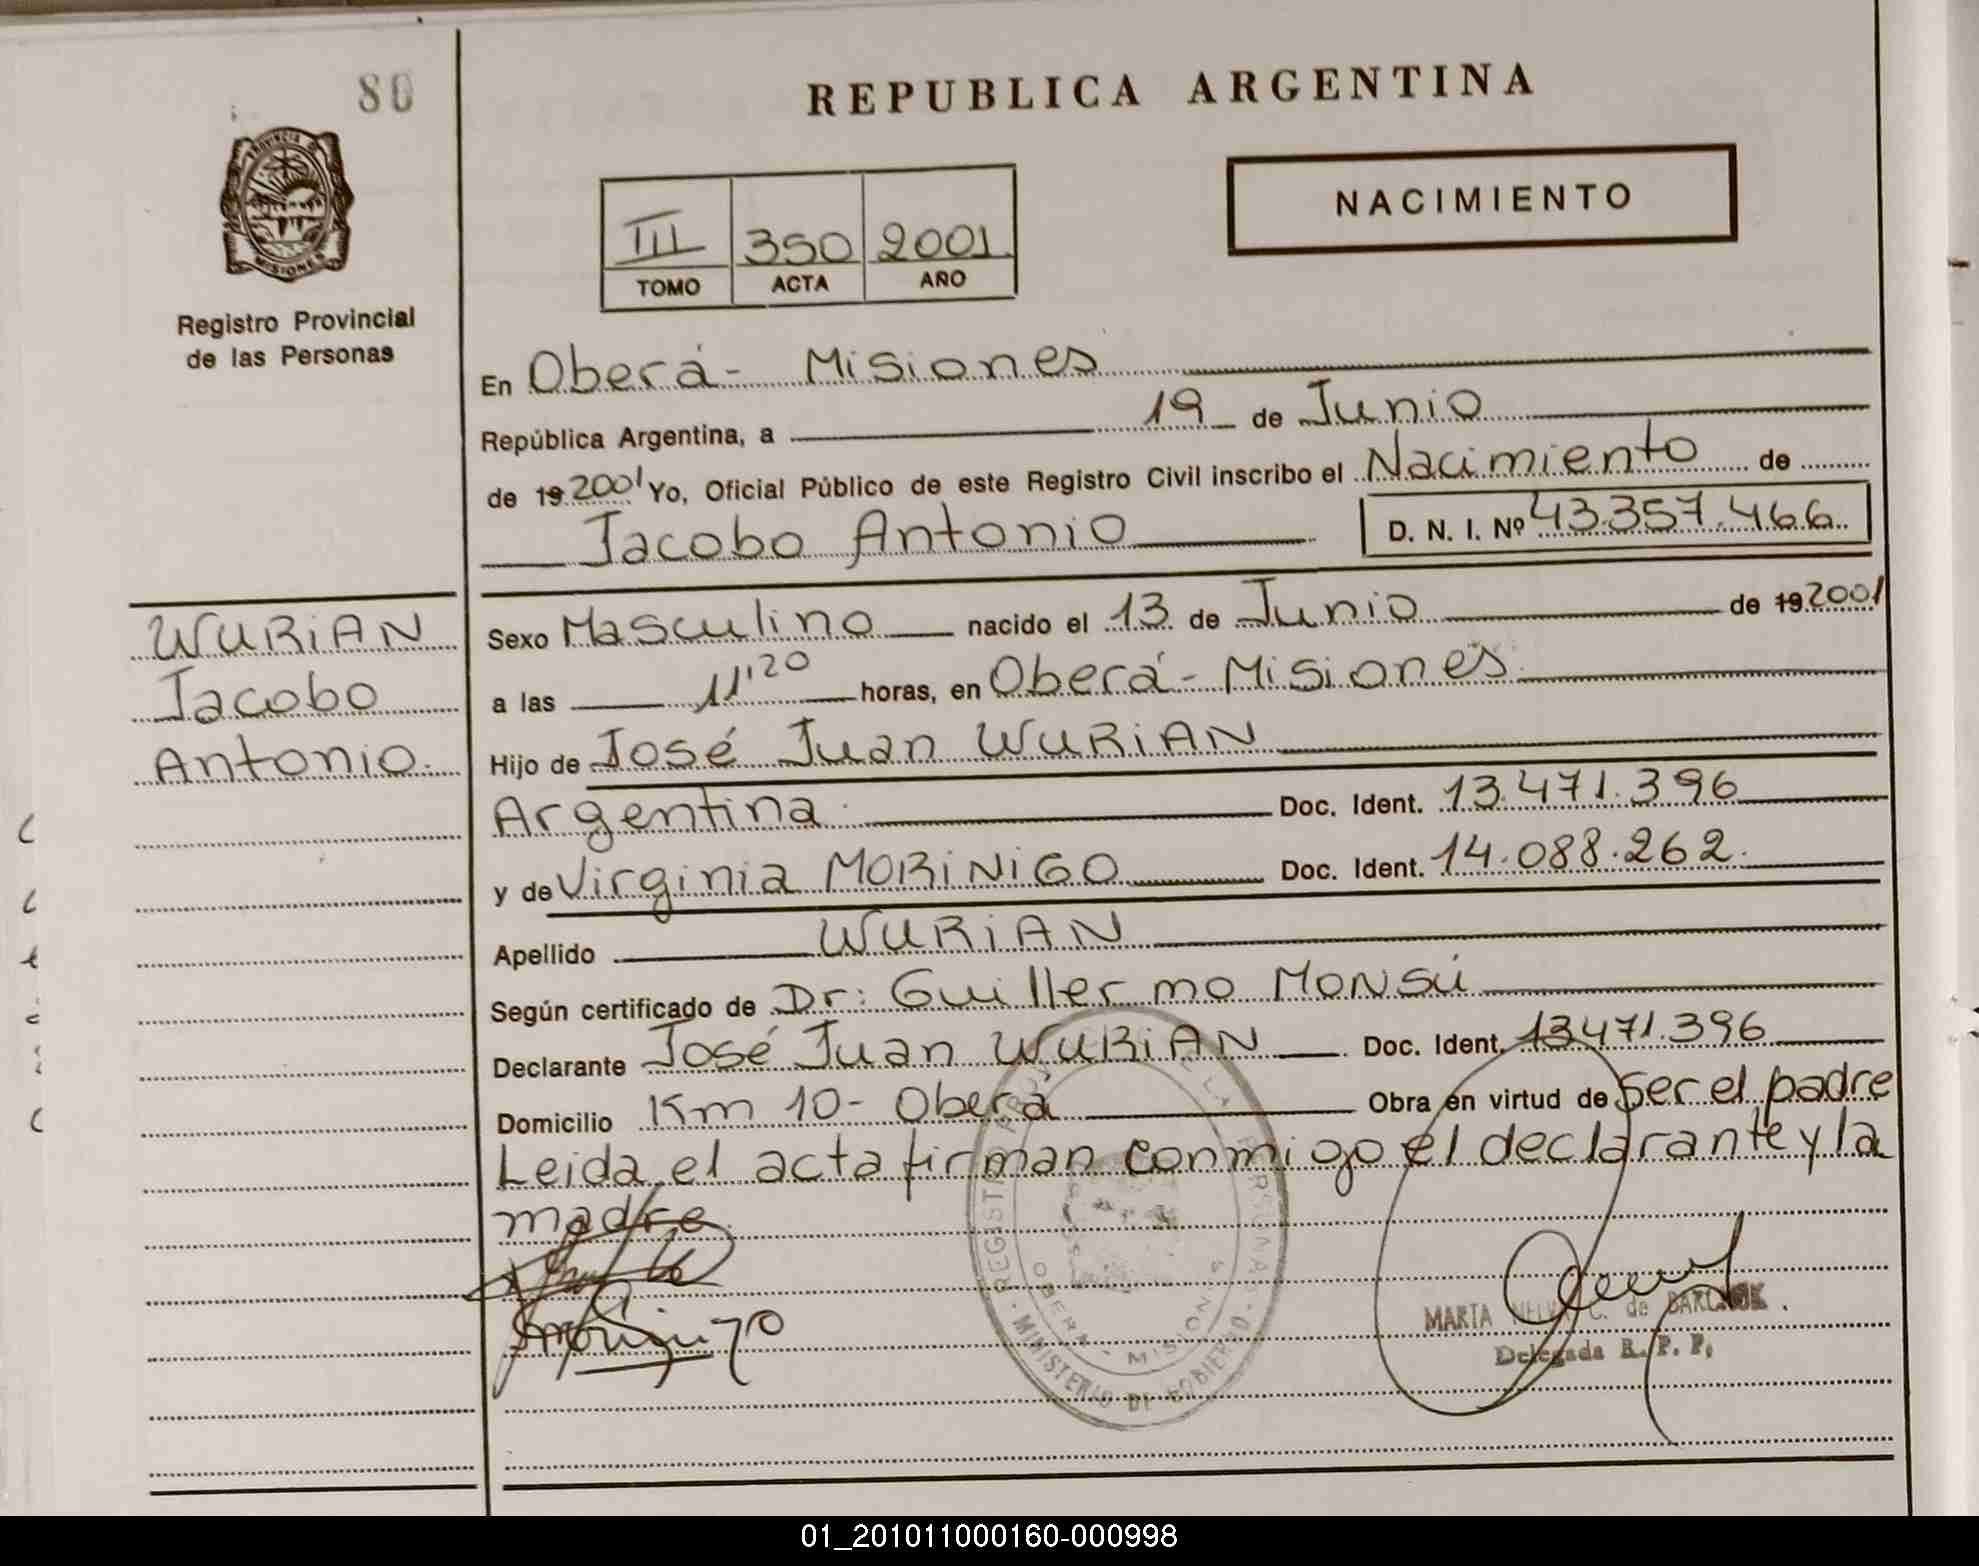 80
REPUBLICA ARGENTINA
PROVINCIA DE MISIONES
Registro Provincial
de las Personas
NACIMIENTO
III 350 2001
TOMO ACTA AÑO
En Oberá - Misiones
República Argentina, a 19 de Junio
de 19 2001 Yo, Oficial Público de este Registro Civil inscribo el Nacimiento de
Jacobo Antonio D. N. I. Nº 43.357.466
WURiAN
Jacobo
Antonio.
Sexo Masculino nacido el 13 de Junio de 19 2001
a las 11'20 horas, en Oberá - Misiones
Hijo de José Juan WURiAN
Argentina Doc. Ident. 13.471.396
y de Virginia MORiNiGO Doc. Ident. 14.088.262
Apellido WURiAN
Según certificado de Dr: Guillermo MONSú
Declarante José Juan WURiAN Doc. Ident. 13471.396
Domicilio Km 10 - Oberá Obra en virtud de ser el padre
Leida el acta firman conmigo el declarante y la
madre
REGISTRO PROV. DE LAS PERSONAS
OBERA - MISIONES
MINISTERIO DE GOBIERNO
MARTA C. de
Delegada R. P. P.
01_201011000160-000998